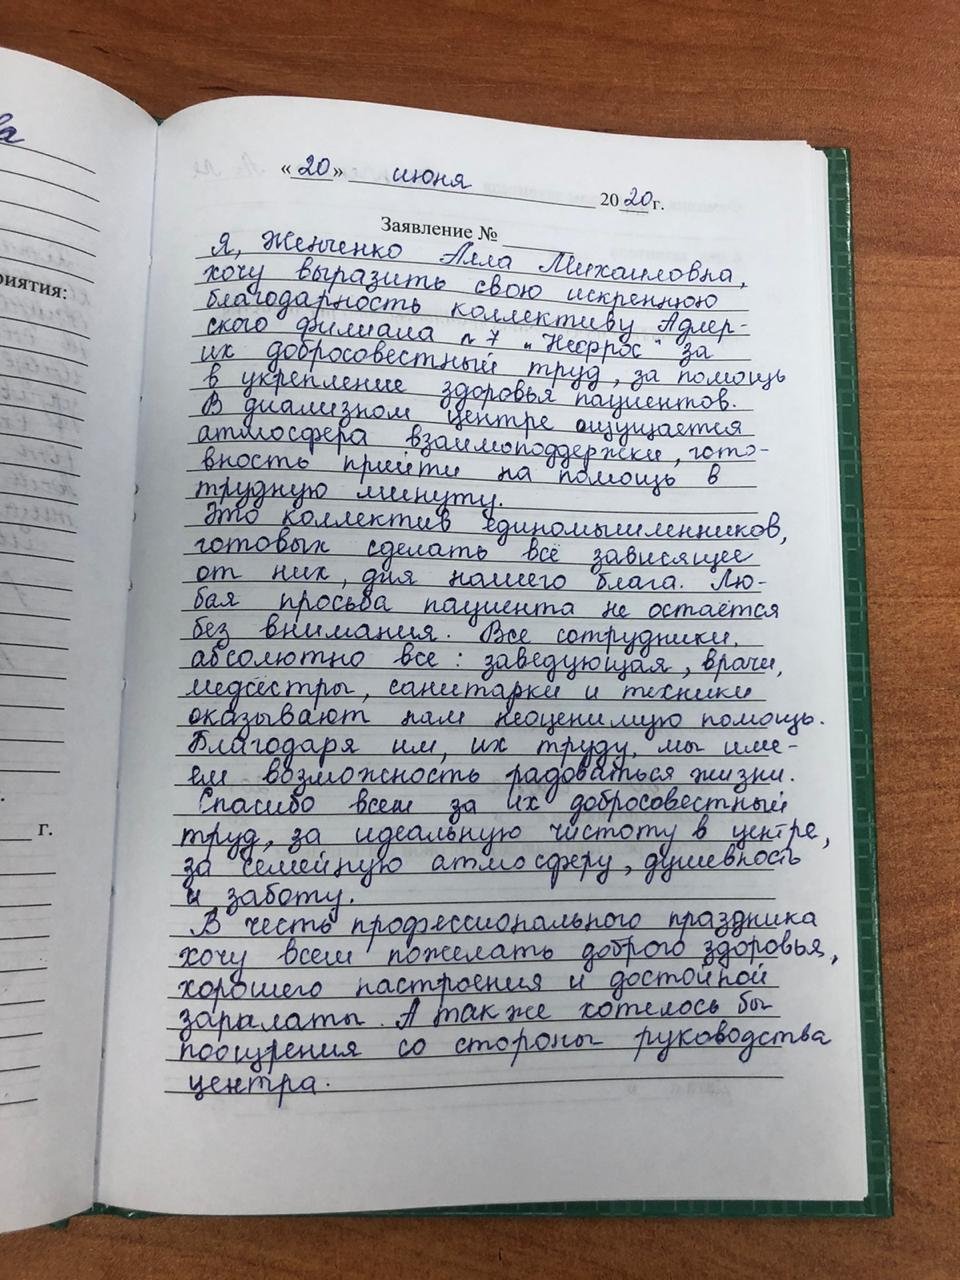 «20» июня 2020г.
Заявление №
Я, Женченко Алла Михайловна,
хочу выразить свою искреннюю
благодарность коллективу Адлер-
ского филиала №7 "Нефрос" за
их добросовестный труд, за помощь
в укрепление здоровья пациентов.
В диализном центре ощущается
атмосфера взаимоподдержки, гото-
вность прийти на помощь в
трудную минуту.
Это коллектив единомышленников,
готовых сделать всё зависящее
от них, для нашего блага. Лю-
бая просьба пациента не остаётся
без внимания. Все сотрудники,
абсолютно все: заведующая, врачи,
медсёстры, санитарки и техники
оказывают нам неоценимую помощь.
Благодаря им, их труду, мы име-
ем возможность радоваться жизни.
Спасибо всем за их добросовестный
труд, за идеальную чистоту в центре,
за семейную атмосферу, душевность
и заботу.
В честь профессионального праздника
хочу всем пожелать доброго здоровья,
хорошего настроения и достойной
зарплаты. А также хотелось бы
поощрения со стороны руководства
центра.
риятия:
г.